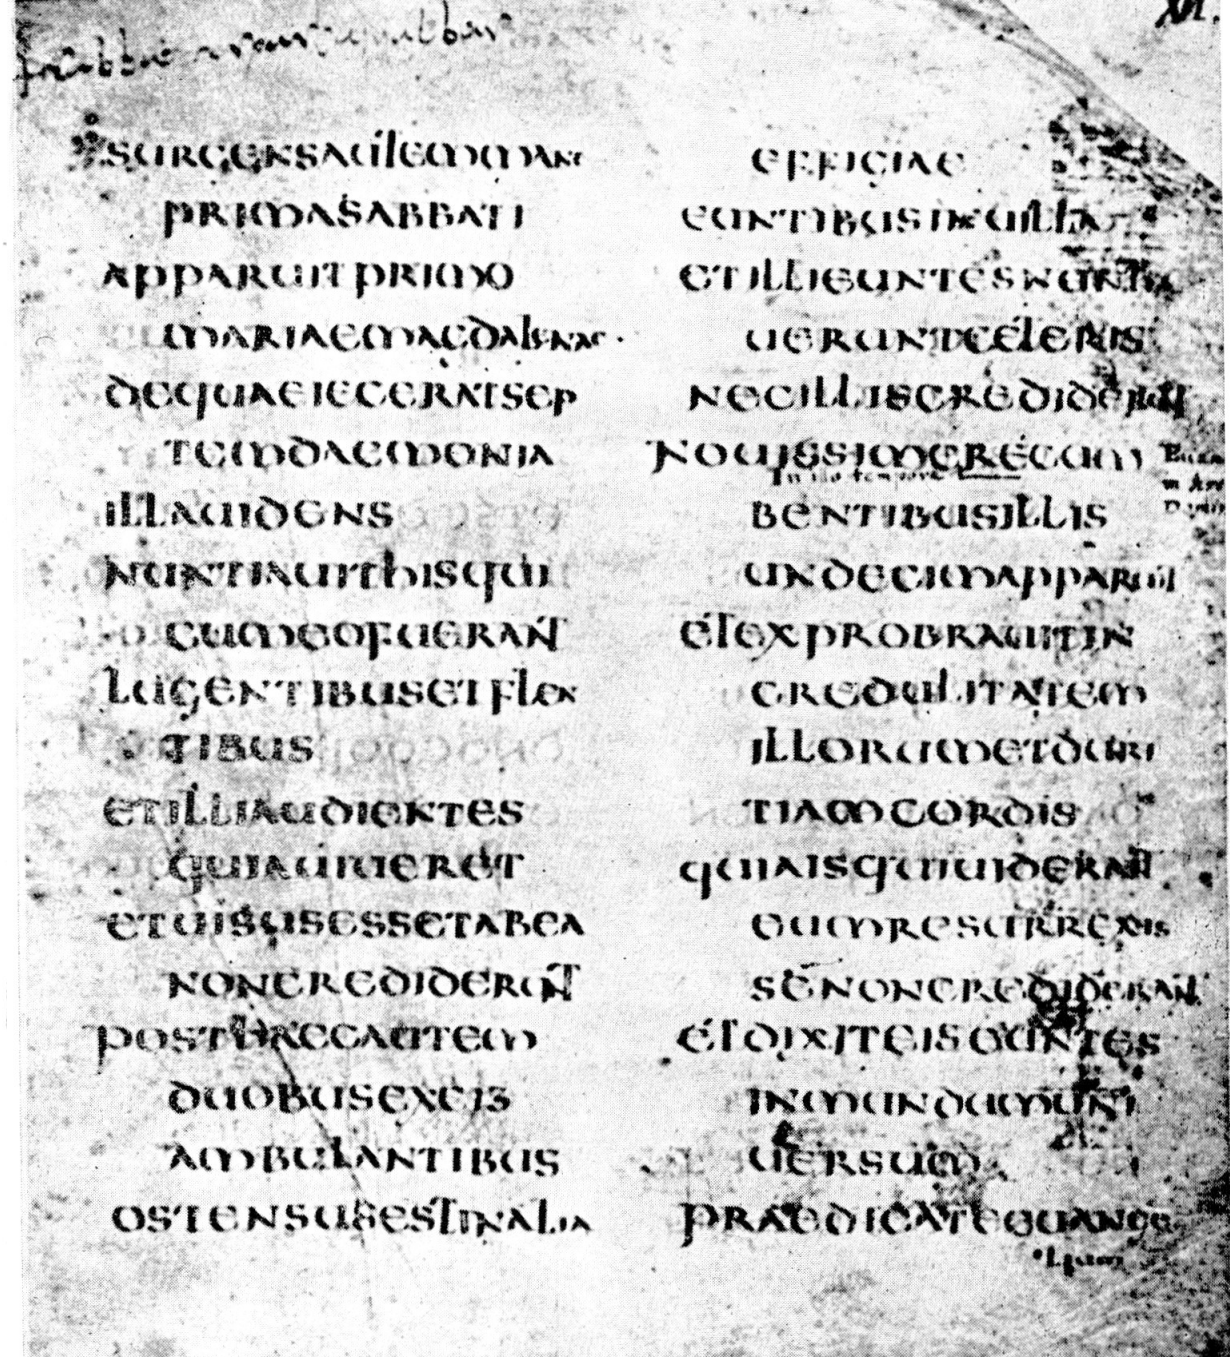 SURGENSAUTEMMANE
PRIMASABBATI
APPARUITPRIMO
MARIAEMAGDALENAE
DEQUAEIECERATSEP
TEMDAEMONIA
ILLAUIDENS
NUNTIAUITHISQUI
CUMEOFUERANT
LUGENTIBUSETFLEN
TIBUS
ETILLIAUDIENTES
QUIAUIUERET
ETUISUSESSETABEA
NONCREDIDERUNT
POSTHAECAUTEM
DUOBUSEXEIS
AMBULANTIBUS
OSTENSUSESTINALIA
EFFIGIAE
EUNTIBUSINUILLA
ETILLIEUNTESNUNTIA
UERUNTCETERIS
NECILLISCREDIDERUNT
NOUISSIMERECUM
In illo tempore
BENTIBUSILLIS
UNDECIMAPPARUIT
ETEXPROBRAUITIN
CREDULITATEM
ILLORUMETDURI
TIAMCORDIS
QUIAISQUIUIDERANT
EUMRESURREXIS
SENONCREDIDERANT
ETDIXITEISEUNTES
INMUNDUMUNI
UERSUM
PRAEDICATEEUANGE
lium